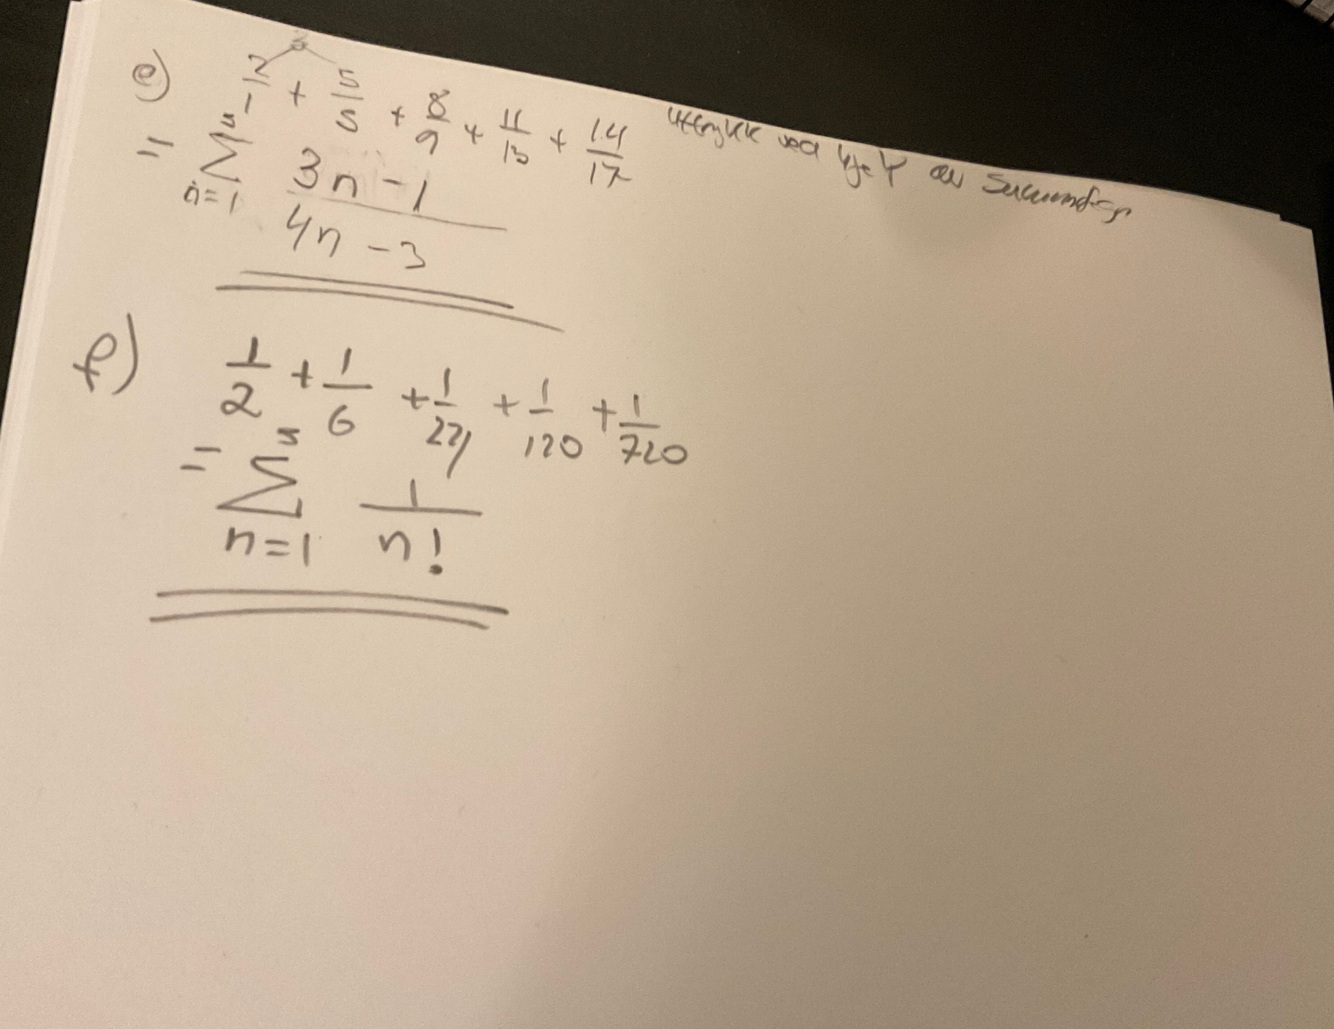 e) 2/1 + 5/5 + 8/9 + 11/13 + 14/17 Uttrykk ved hjelp av summetegn
3
= 5 ∑ n=1 3n - 1 / 4n - 3
f) 1/2 + 1/6 + 1/24 + 1/120 + 1/720
= 5 ∑ n=1 1/n!